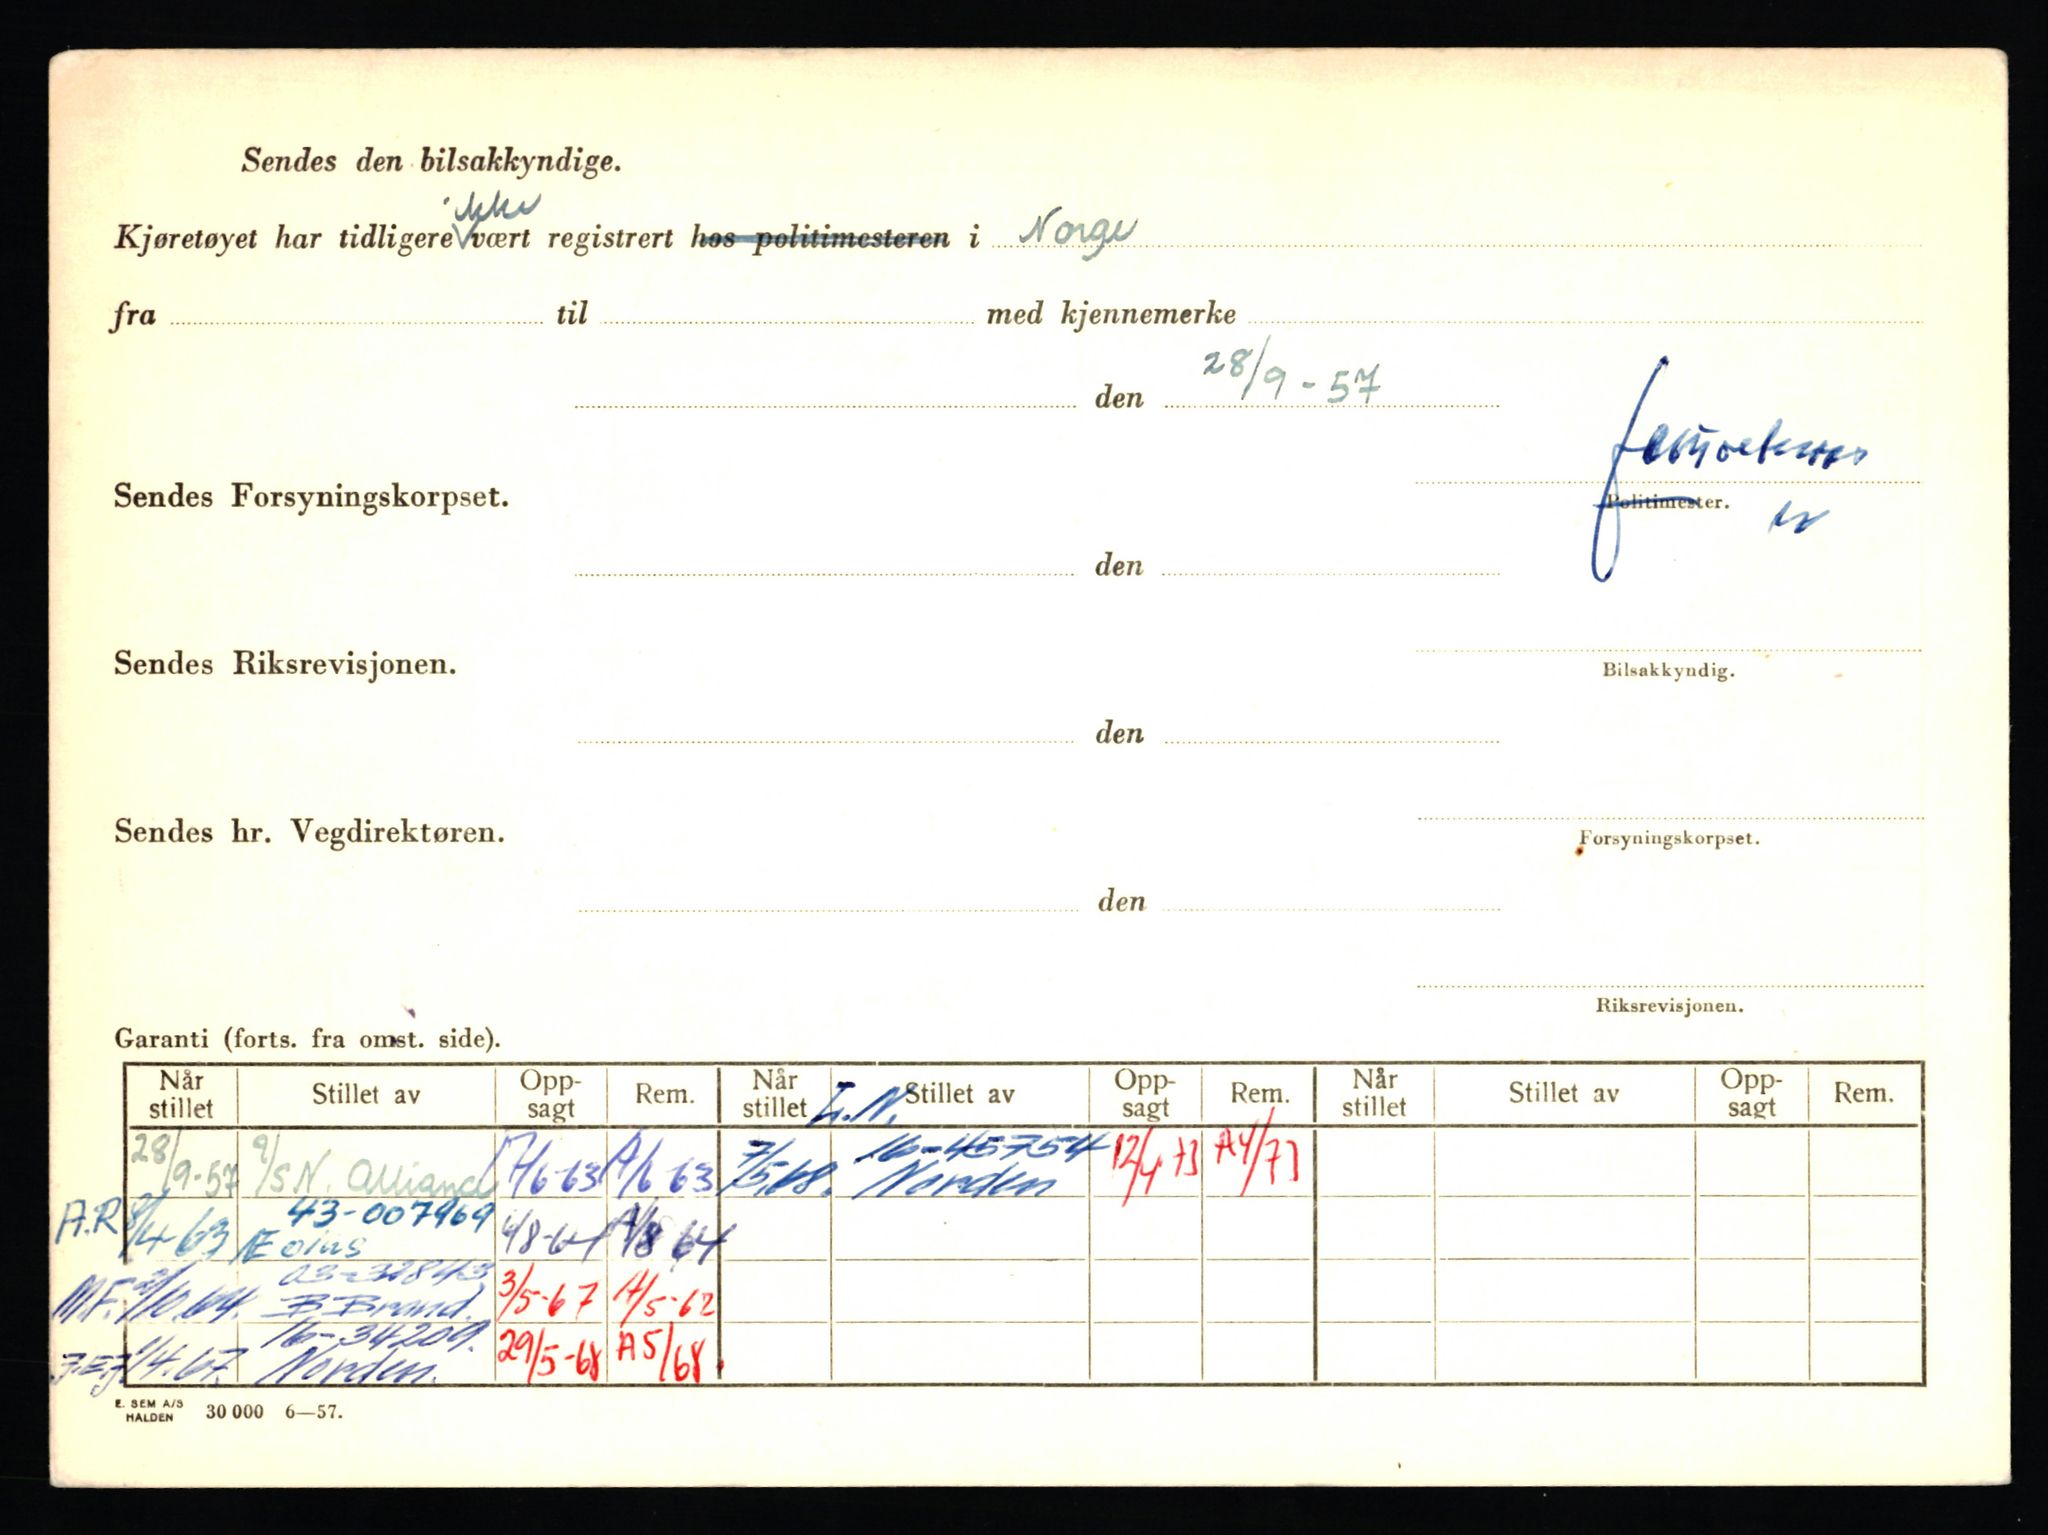 Sendes den bilsakkyndige.
Kjøretøyet har tidligere ikke vært registrert hos politimesteren i Norge
fra til med kjennemerke
den 28/9-57
Sendes Forsyningskorpset.
Politimester.
den
Sendes Riksrevisjonen.
Bilsakkyndig.
den
Sendes hr. Vegdirektøren.
Forsyningskorpset.
den
Riksrevisjonen.
Garanti (forts. fra omst. side).
Når stillet Stillet av Opp-sagt Rem. Når stillet Stillet av Opp-sagt Rem. Når stillet Stillet av Opp-sagt Rem.
28/9-57 N. Alliance 17/6-63 A/6-63 7/5.68. 16-45754 Norden 12/4 73 A4/73
A.R /4-63 43-007969 Æolus 4/8-64 A/8 64
M.F. /10.64. 03-32843 B Brand. 3/5-67
/4.67. 16-34209. Norden. 29/5-68 A5/68.
E. SEM A/S HALDEN 30 000 6—57.